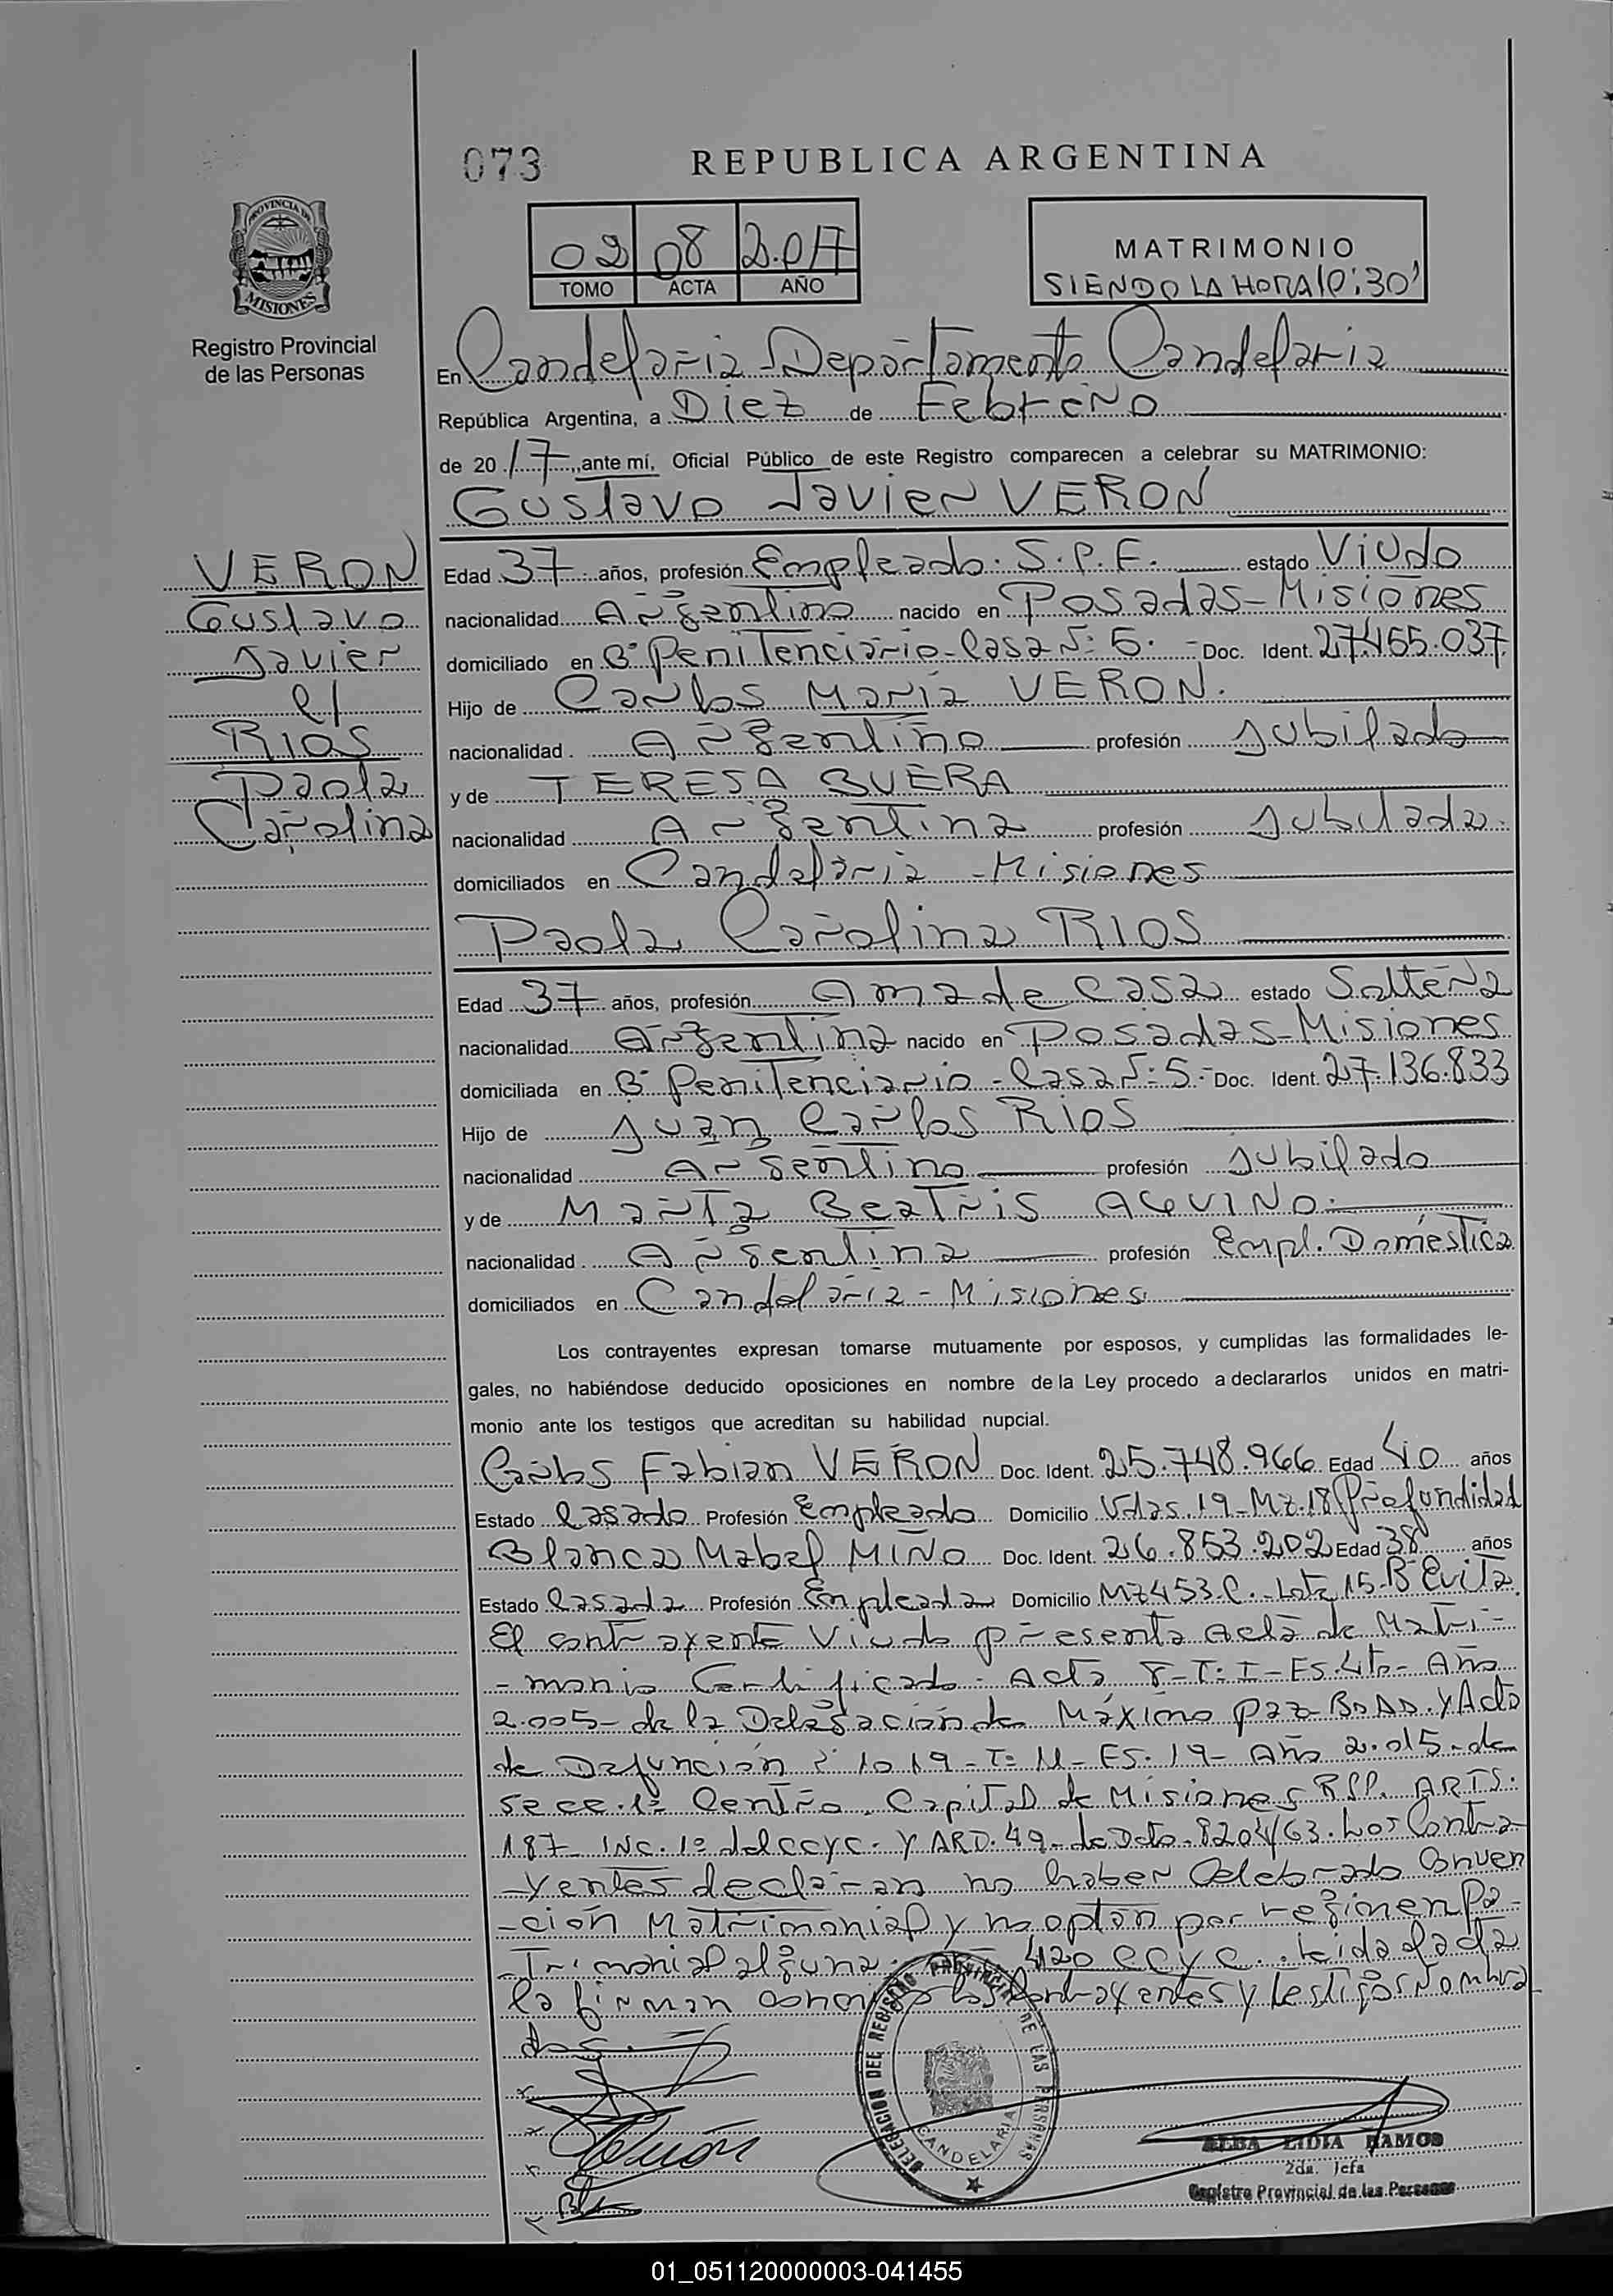 073
REPUBLICA ARGENTINA
02 08 2.017
TOMO ACTA AÑO
MATRIMONIO
SIENDO LA HORA 10:30'
PROVINCIA DE
MISIONES
Registro Provincial
de las Personas
En Candelaria - Departamento Candelaria
República Argentina, a Diez de Febrero
de 2017, ante mí, Oficial Público de este Registro comparecen a celebrar su MATRIMONIO:
Gustavo Javier VERON
VERON
Gustavo
Javier
c/
RIOS
Paola
Carolina
Edad 37 años, profesión Empleado S.P.F. estado Viudo
nacionalidad Argentino nacido en Posadas - Misiones
domiciliado en Bº Penitenciario - Casa Nº 5. - Doc. Ident. 27.455.037
Hijo de Carlos Maria VERON.
nacionalidad Argentino profesión Jubilado
y de TERESA BUERA
nacionalidad Argentina profesión Jubilada.
domiciliados en Candelaria - Misiones
Paola Carolina RIOS
Edad 37 años, profesión Ama de casa estado Soltera
nacionalidad Argentina nacido en Posadas - Misiones
domiciliada en Bº Penitenciario - Casa Nº 5. - Doc. Ident. 27.136.833
Hijo de Juan Carlos RIOS
nacionalidad Argentino profesión Jubilado
y de Marta Beatris AQUINO.
nacionalidad Argentina profesión Empl. Doméstica
domiciliados en Candelaria - Misiones
Los contrayentes expresan tomarse mutuamente por esposos, y cumplidas las formalidades le-
gales, no habiéndose deducido oposiciones en nombre de la Ley procedo a declararlos unidos en matri-
monio ante los testigos que acreditan su habilidad nupcial.
Carlos Fabian VERON Doc. Ident. 25.748.966 Edad 40 años
Estado Casado Profesión Empleado Domicilio Vdas. 19 - Mz. 18 Profundidad
Blanca Mabel MIÑO Doc. Ident. 26.853.202 Edad 38 años
Estado Casada Profesión Empleada Domicilio Mz 453 C. - Lote 15 - Bº Evita
El contrayente Viudo presenta Acta de Matri-
-monio Certificado - Acta 8 - Tº I - Es. 4to - Año
2.005 - de la Delegación de Máximo paz Bs As. y Acta
de Defunción 1019 - Tº 11 - Es. 19 - Año 2.015 - de
Secc. 1ª Centro. Capital de Misiones RSP. ARTS.
187 INC. 1º del CCYC. Y ARD. 49 - de Dcto. 8204/63. Los Contra-
-yentes declaran no haber Celebrado Conven
-ción Matrimonial y no optan por regimen Pa-
-trimonial alguno. 420 CCYC. Leida el acta
la firman conmigo los Contrayentes y testigos Nombra
dos.
DELEGACION DEL REGISTRO PROVINCIAL DE LAS PERSONAS
CANDELARIA
ALBA LIDIA RAMOS
2da. Jefa
Registro Provincial de las Personas
01_051120000003-041455